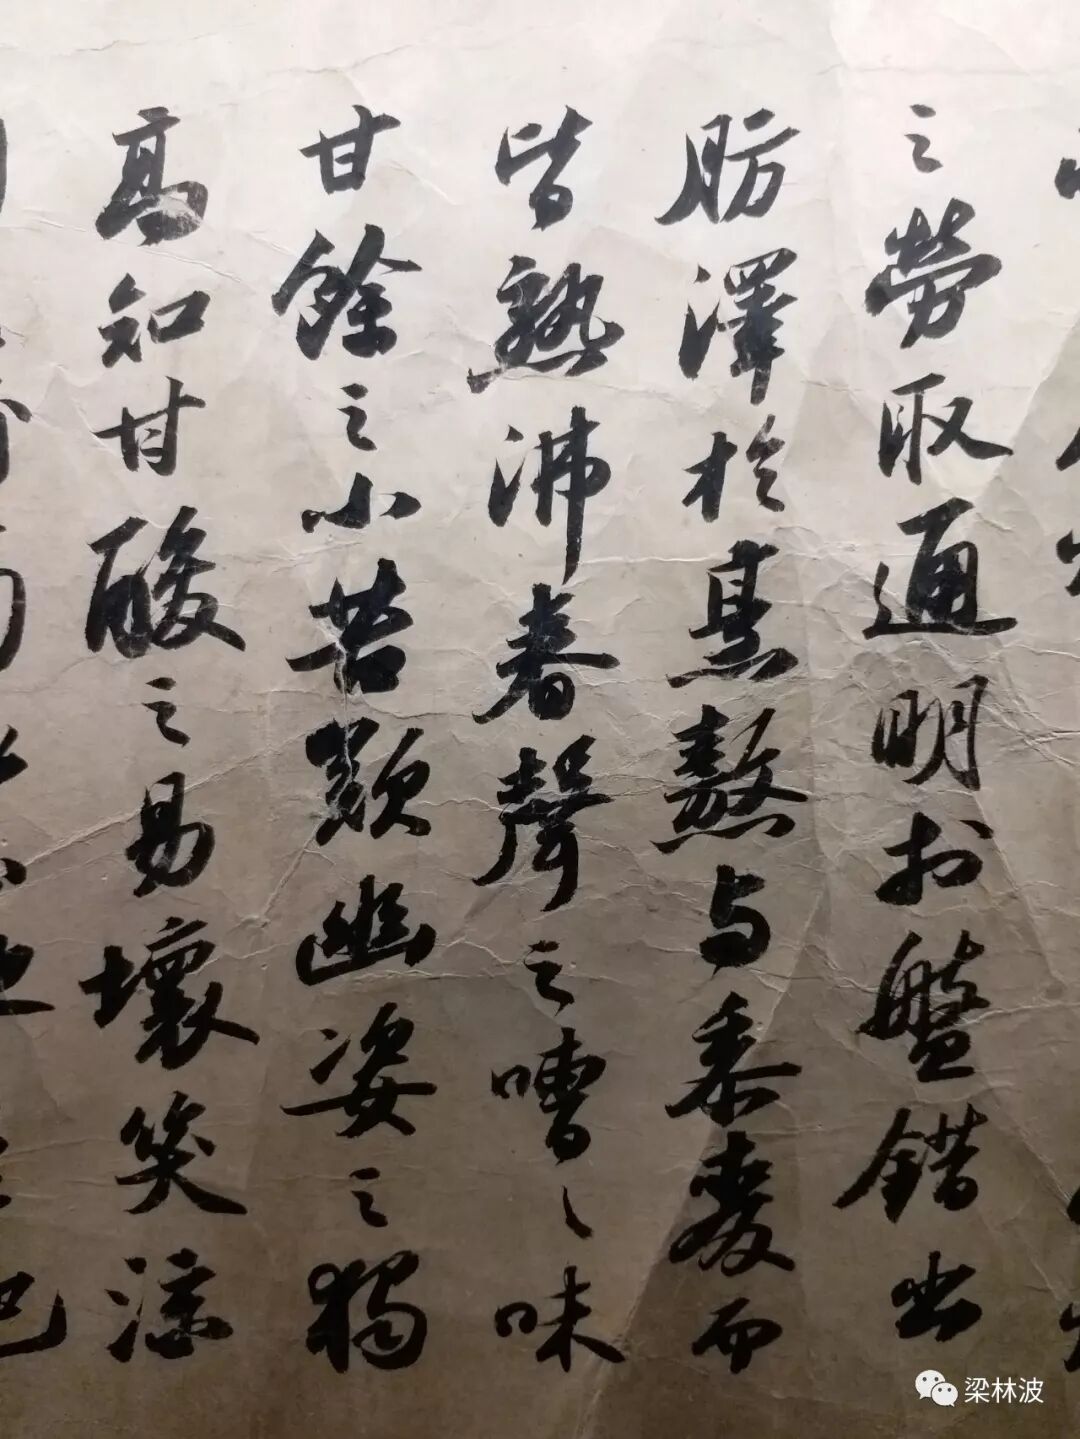 之勞取通明於盤錯出
肪澤於烹熬与黍麥而
皆熟沸舂聲之嘈〻味
甘餘之小苦歎幽姿之獨
高知甘酸之易壞笑涼
梁林波